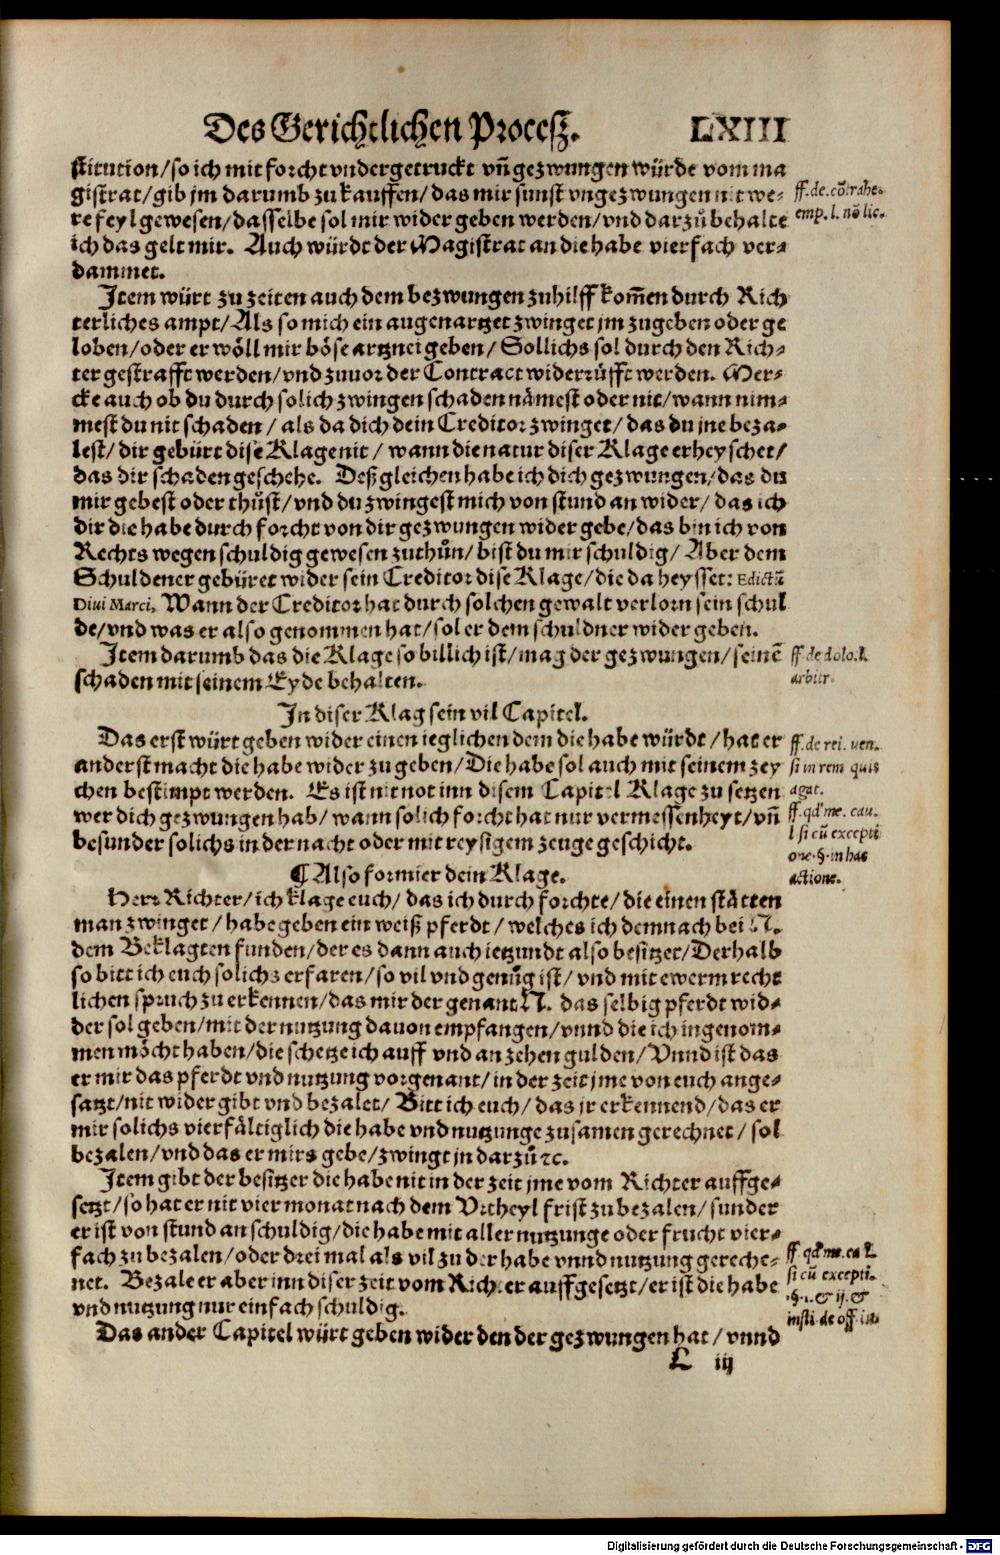 Des Gerichtlichen Procesz. LXIII
stitution/so ich mit forcht vndergetruckt vn̄ gezwungen würde vom ma
gistrat/gib jm darumb zu kauffen/das mir sunst vngezwungen nit we⸗
re feyl gewesen/dasselbe sol mir wider geben werden/vnd darzů behalte
ich das gelt mir. Auch würdt der Magistrat an die habe vierfach ver⸗
dammet.
ff. de. cōtrahe.
emp. l. nō lic.
Item würt zu zeiten auch dem bezwungen zuhilff kom̄en durch Rich
terliches ampt/Als so mich ein augenartzet zwinget jm zugeben oder ge
loben/oder er wöll mir böse artznei geben/Sollichs sol durch den Rich⸗
ter gestrafft werden/vnd zuuor der Contract widerrüfft werden. Mer⸗
cke auch ob du durch solich zwingen schaden nämest oder nit/wann nim⸗
mest du nit schaden/als da dich dein Creditor zwinget/das du jne beza⸗
lest/dir gebürt dise Klage nit/wann die natur diser Klage erheyschet/
das dir schaden geschehe. Deßgleichen habe ich dich gezwungen/das du
mir gebest oder thůst/vnd du zwingest mich von stund an wider/das ich
dir die habe durch forcht von dir gezwungen wider gebe/das bin ich von
Rechts wegen schuldig gewesen zuthůn/bist du mir schuldig/Aber dem
Schuldener gebüret wider sein Creditor dise Klage/die da heysset: Edictū
Diui Marci, Wann der Creditor hat durch solchen gewalt verlorn sein schul
de/vnd was er also genommen hat/sol er dem schuldner wider geben.
Item darumb das die Klage so billich ist/mag der gezwungen/seinē
schaden mit seinem Eyde behalten.
ff. de dolo. l.
arbitr.
In diser Klag sein vil Capitel.
Das erst würt geben wider einen ieglichen dem die habe würdt/hat er
anderst macht die habe wider zu geben/Die habe sol auch mit seinem zey
chen bestimpt werden. Es ist nit not inn disem Capitel Klage zu setzen
wer dich gezwungen hab/wann solich forcht hat nur vermessenheyt/vn̄
besunder solichs in der nacht oder mit reysigem zeuge geschicht.
ff. de rei. uen.
si in rem quis
agat.
ff. qd' me. cau.
l. si cū excepti
one. §. in hac
actione.
¶ Also formier dein Klage.
Herr Richter/ich klage euch/das ich durch forchte/die einen stätten
man zwinget/habe geben ein weiß pferdt/welches ich demnach bei N.
dem Beklagten funden/der es dann auch ietzundt also besitzet/Derhalb
so bitt ich euch solichs erfaren/so vil vnd genůg ist/vnd mit ewerm recht
lichen spruch zu erkennen/das mir der genant N. das selbig pferdt wid⸗
der sol geben/mit der nutzung dauon empfangen/vnnd die ich ingenom⸗
men möcht haben/die schetze ich auff vnd an zehen gulden/Vnnd ist das
er mir das pferdt vnd nutzung vorgenant/in der zeit jme von euch ange⸗
satzt/nit wider gibt vnd bezalet/Bitt ich euch/das jr erkennend/das er
mir solichs vierfältiglich die habe vnd nutzunge zusamen gerechnet/sol
bezalen/vnd das er mirs gebe/zwingt jn darzů ꝛc.
Item gibt der besitzer die habe nit in der zeit jme vom Richter auffge⸗
setzt/so hat er nit vier monat nach dem Vrtheyl frist zu bezalen/sunder
er ist von stund an schuldig/die habe mit aller nutzunge oder frucht vier⸗
fach zu bezalen/oder drei mal als vil zu der habe vnnd nutzung gereche⸗
net. Bezale er aber inn diser zeit vom Richter auffgesetzt/er ist die habe
vnd nutzung nur einfach schuldig.
ff. qd' me. ca. l.
si cū excepti.
§. i. & ij. &
insti. de off. iu.
Das ander Capitel würt geben wider den der gezwungen hat/vnnd
L iij
Digitalisierung gefördert durch die Deutsche Forschungsgemeinschaft - DFG